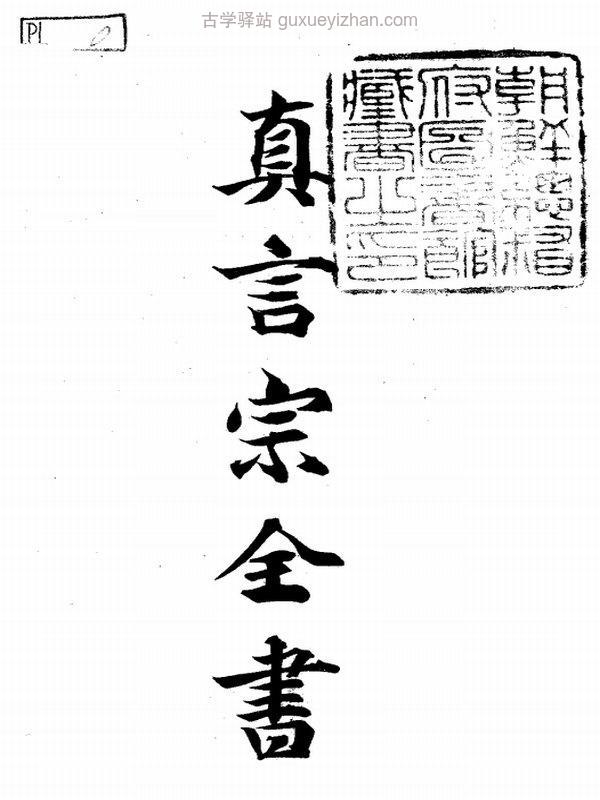 古学驿站 guxueyizhan.com
P1
真言宗全書
朝鮮總督
府圖書館
藏書之印